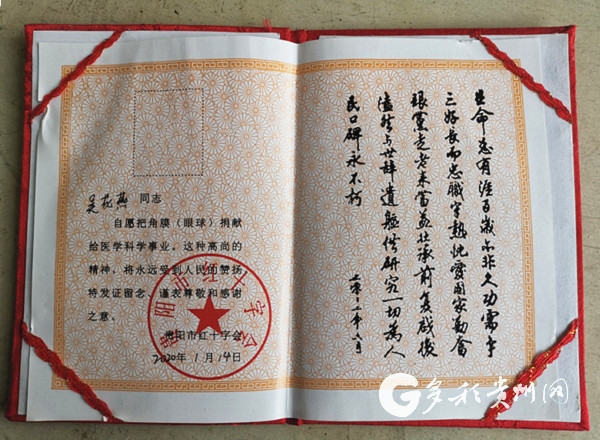 吴花燕 同志
自愿把角膜（眼球）捐献
给医学科学事业。这种高尚的
精神，将永远受到人民的赞扬
特发证留念、谨表尊敬和感谢
之意。
贵阳市红十字会
2020年1月14日
贵阳市红十字会
生命总有涯百岁亦非久功需
三好长而忠职守热忱爱国家勤奋
跟党走老来当益壮承前复启後
溘然与世辞遗躯供研究一切为人
民口碑永不朽
多彩贵州网